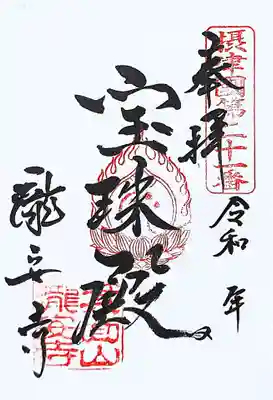 摂津國第二十一番
奉拝
令和 年
宝珠殿
瀧安寺
箕面山
瀧安寺